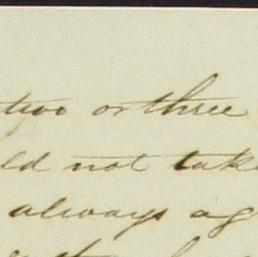 two or three
ld not take
always ag